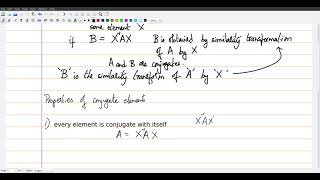 some element X
if B = X⁻¹AX B is obtained by similarity transformation
of A by X
A and B are conjugates.
'B' is the similarity transform of 'A' by 'X'
Properties of conjugate elements
X⁻¹AX
i) every element is conjugate with itself
A = X⁻¹A X